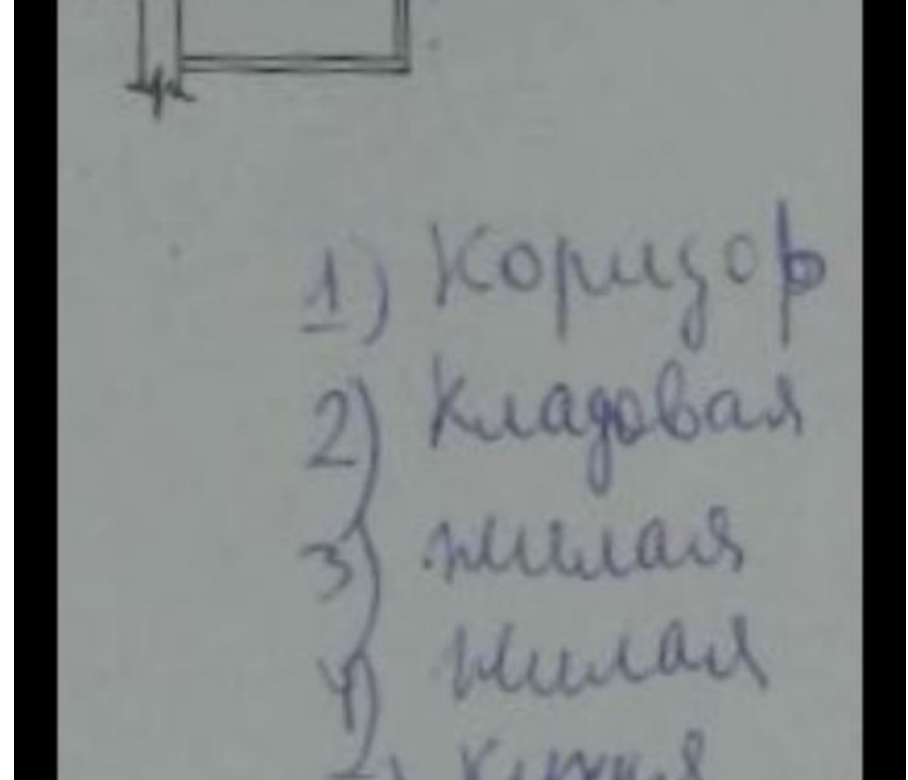 1) Коридор
2) Кладовая
3) жилая
4) жилая
кухня